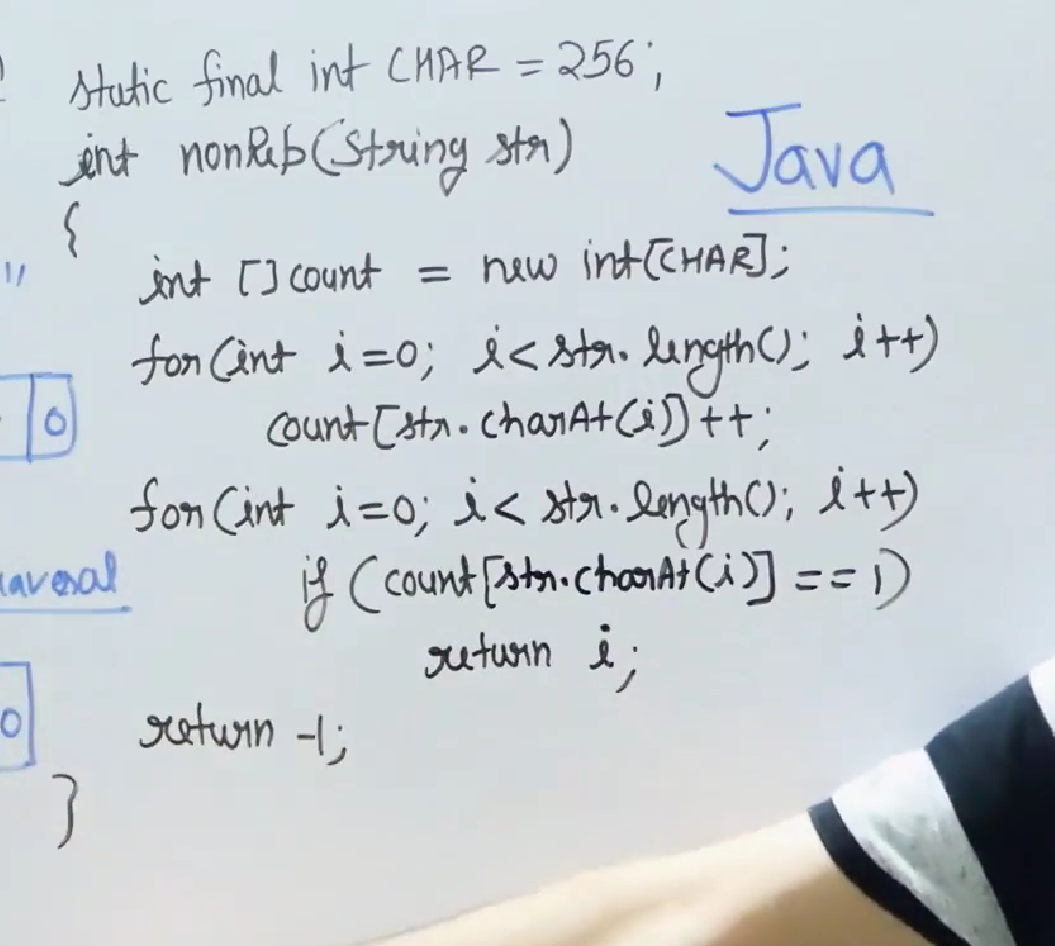 static final int CHAR = 256;
int nonRep(String str)
Java
{
int [] count = new int[CHAR];
for(int i=0; i<str.length(); i++)
0
count[str.charAt(i)]++;
for(int i=0; i< str.length(); i++)
if (count[str.charAt(i)] == 1)
return i;
0
return -1;
}